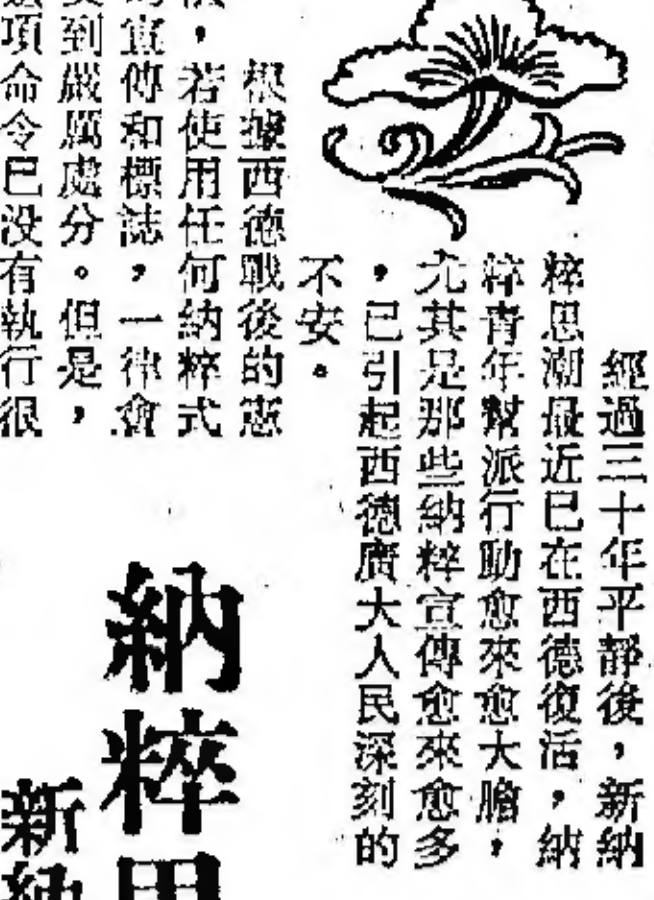 經過三十年平靜後，新納
粹思潮最近已在西德復活，納
粹青年幫派行動愈來愈大膽，
尤其是那些納粹宣傳愈來愈多
，已引起西德廣大人民深刻的
不安。
根據西德戰後的憲
，若使用任何納粹式
宣傳和標誌，一律會
到嚴厲處分。但是，
項命令已没有執行很
納粹
新